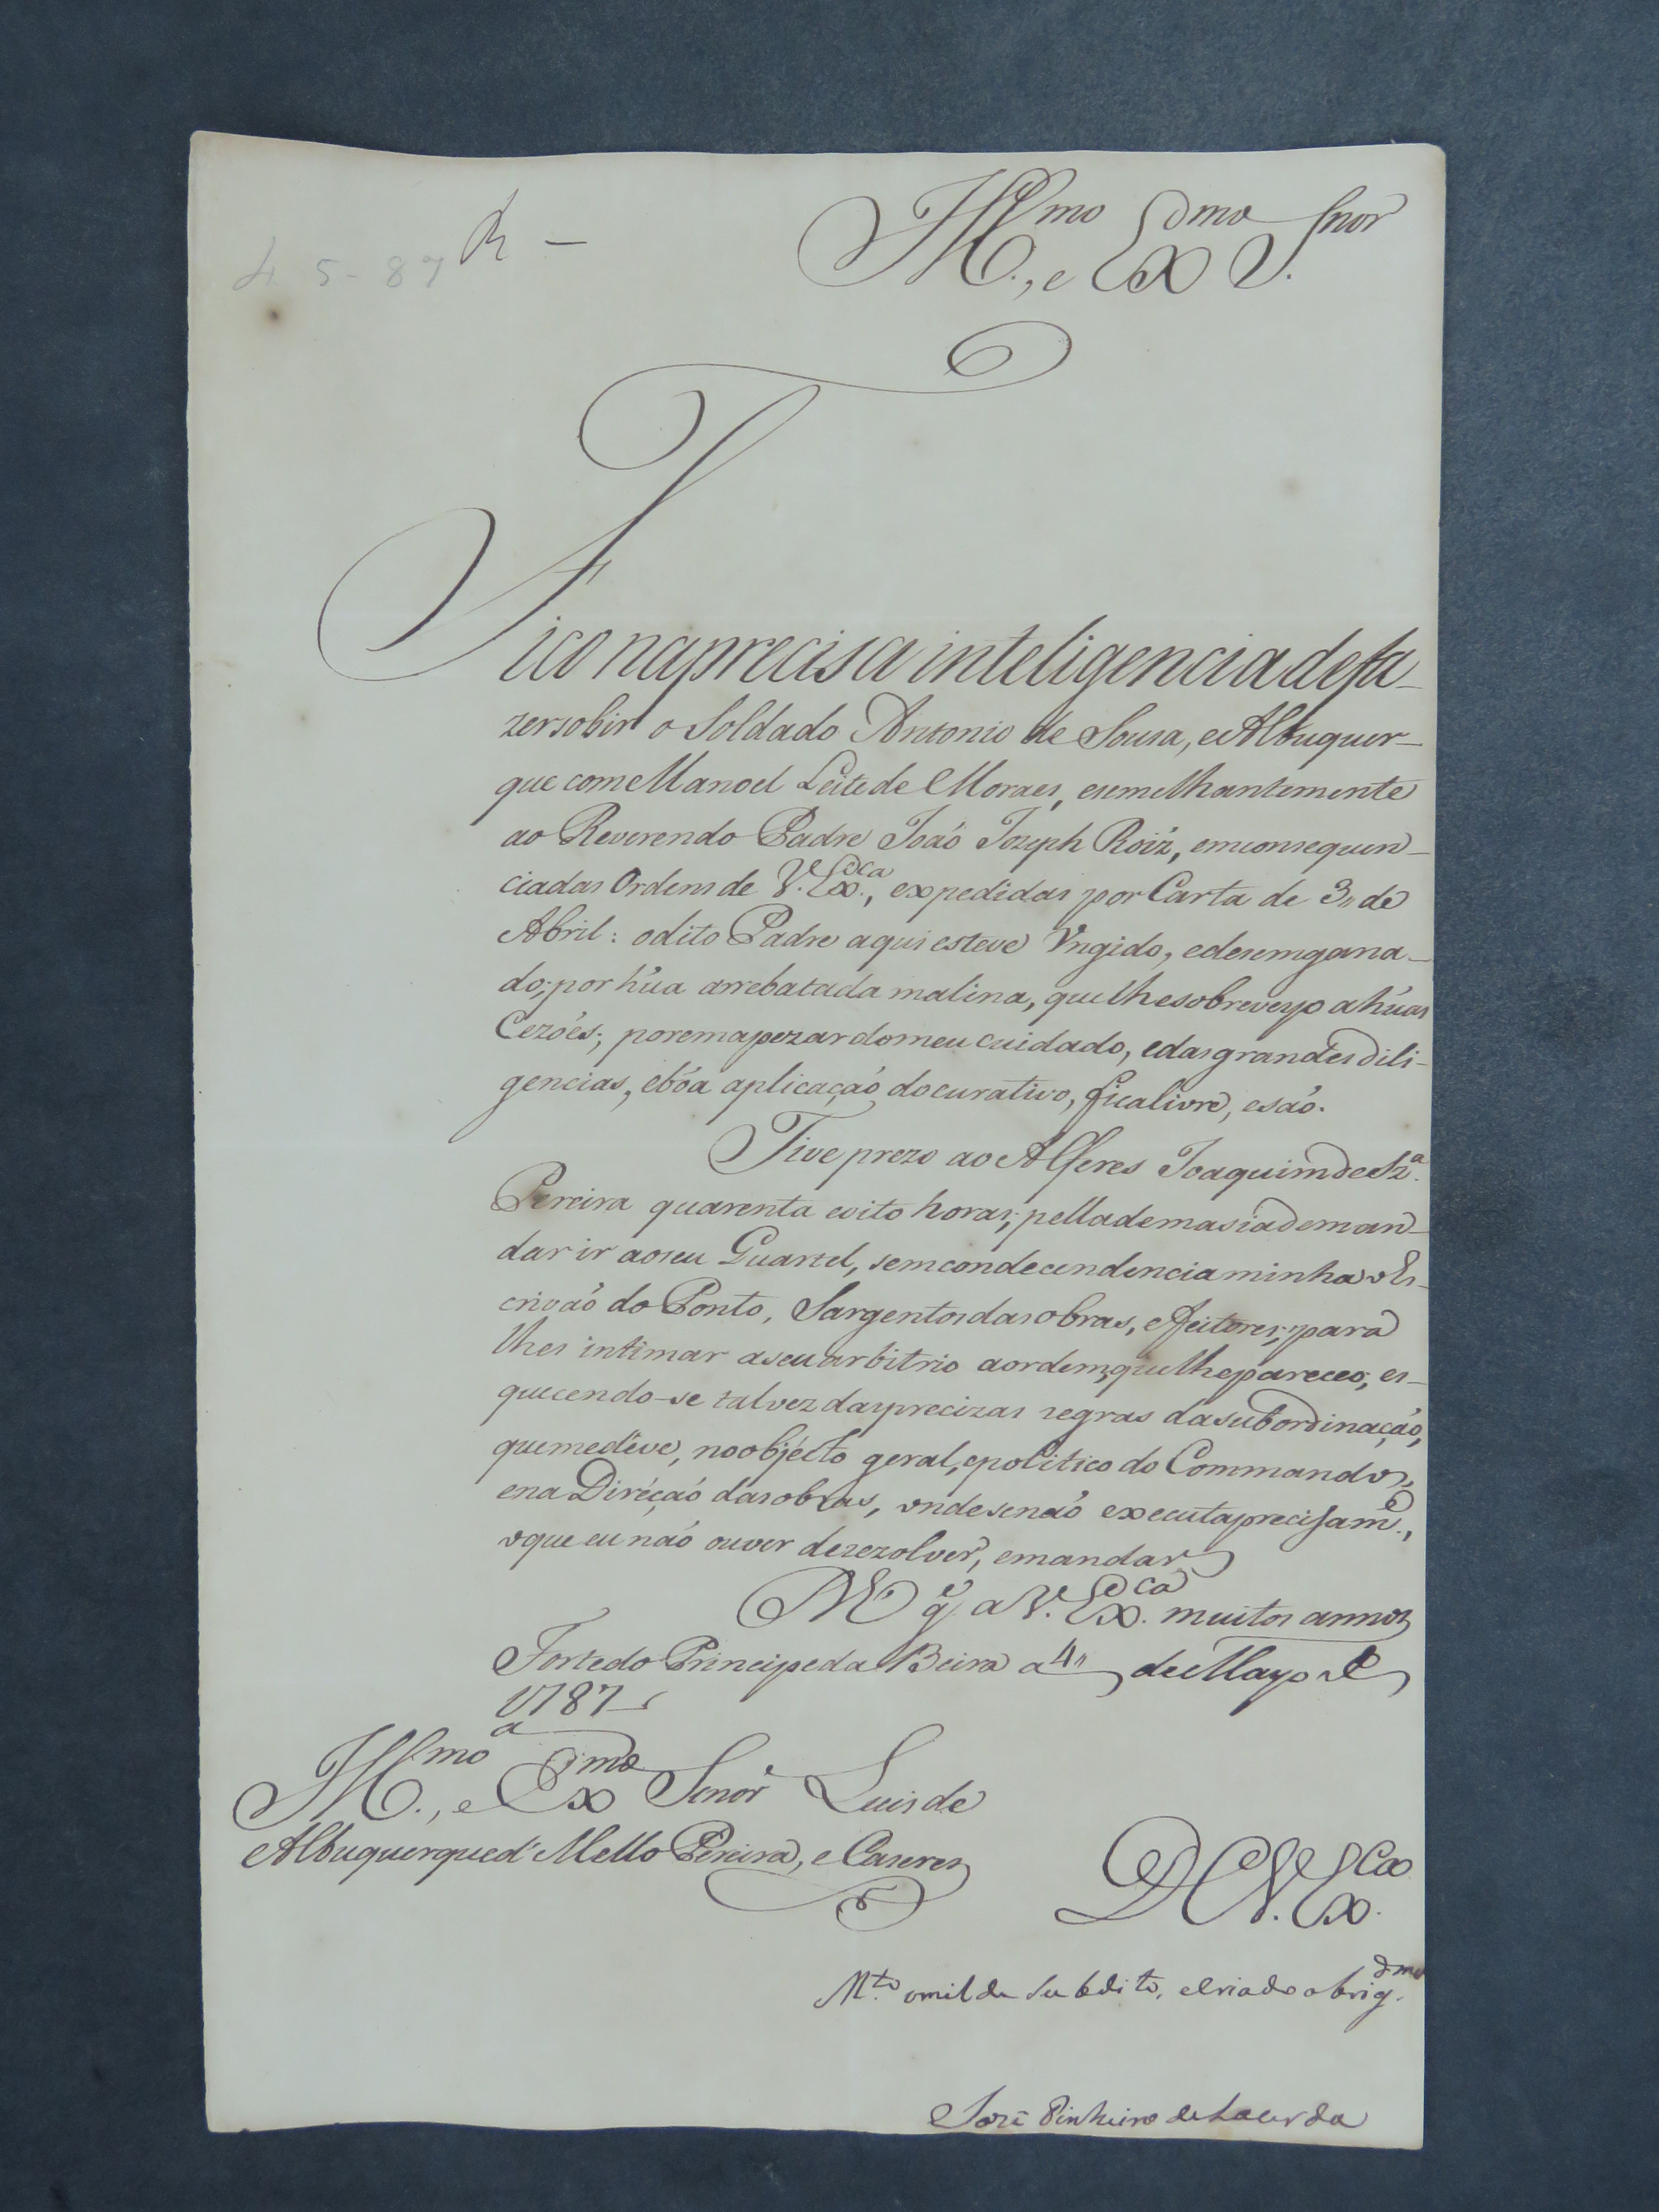 4 5-87 R –
Ill.mo, e Ex.mo Snor
Fico na precisa inteligencia de fa-
zer sobir o Soldado Antonio de Sousa, e Albuquer-
que com Manoel Leite de Moraes, esemelhantemente
ao Reverendo Padre João Jozeph Roiz, emconsequen-
cia das Ordens de V. Ex.ca, expedidas por Carta de 3,, de
Abril: o dito Padre aqui esteve Vngido, e desemgana-
do; por hũa arrebatada malina, que lhe sobreveyo a hũas
Cezões; porem apezar do meu cuidado, e das grandes dili-
gencias, e bôa aplicação do curativo, fica livre, e são.
Tive prezo ao Alferes Joaquim de Sz.a
Pereira quarenta e oito horas; pella demasia de man-
dar ir ao seu Guartel, sem condecendencia minha o Es-
crivão do Ponto, Sargentos das obras, e feitores; para
lhes intimar a seu arbitrio a ordem, que lhe pareceo; es-
quecendo-se talvez das precizas regras da subordinação,
que me deve, no objécto geral, e politico do Commando,
e na Diréção das obras, onde se não executa precisam.e,
o que eu não ouver de rezolver, e mandar
g.e a V. Ex.ca muitos annos
Forte do Principe da Beira a 4,, de Mayo de
1787
Ill.mo, e Ex.mo Senor Luis de
Albuquerque d' Mello Pereira, e Caseres
D V. Ex.ca
M.to omilde Subdito, e criado obrig.dmo
José Pinheiro de Lacerda